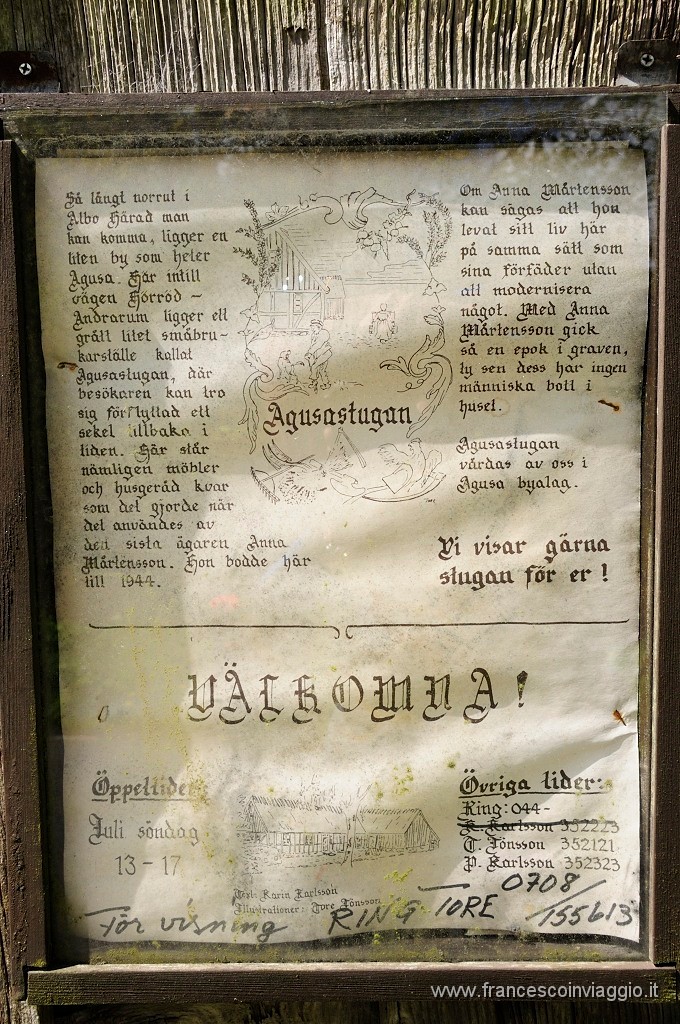 Så långt norrut i
Albo Härad man
kan komma, ligger en
liten by som heter
Agusa. Här intill
vägen Hörröd -
Andrarum ligger ett
grått litet småbru-
karställe kallat
Agusastugan, där
besökaren kan tro
sig förflyttad ett
sekel tillbaka i
tiden. Här står
nämligen möbler
och husgeråd kvar
som det gjorde när
det användes av
den sista ägaren Anna
Mårtensson. Hon bodde här
till 1944.
Agusastugan
Om Anna Mårtensson
kan sägas att hon
levat sitt liv här
på samma sätt som
sina förfäder utan
att modernisera
något. Med Anna
Mårtensson gick
så en epok i graven,
ty sen dess har ingen
människa bott i
huset.
Agusastugan
vårdas av oss i
Agusa byalag.
Vi visar gärna
stugan för er!
VÄLKOMNA!
Öppettider
Juli söndag
13-17
Övriga tider:
Ring: 044-
K. Karlsson 352223
T. Jönsson 352121
P. Karlsson 352323
Text: Karin Karlsson
Illustrationer: Tore Jönsson
För visning RING TORE 0708/155613
www.francescoinviaggio.it